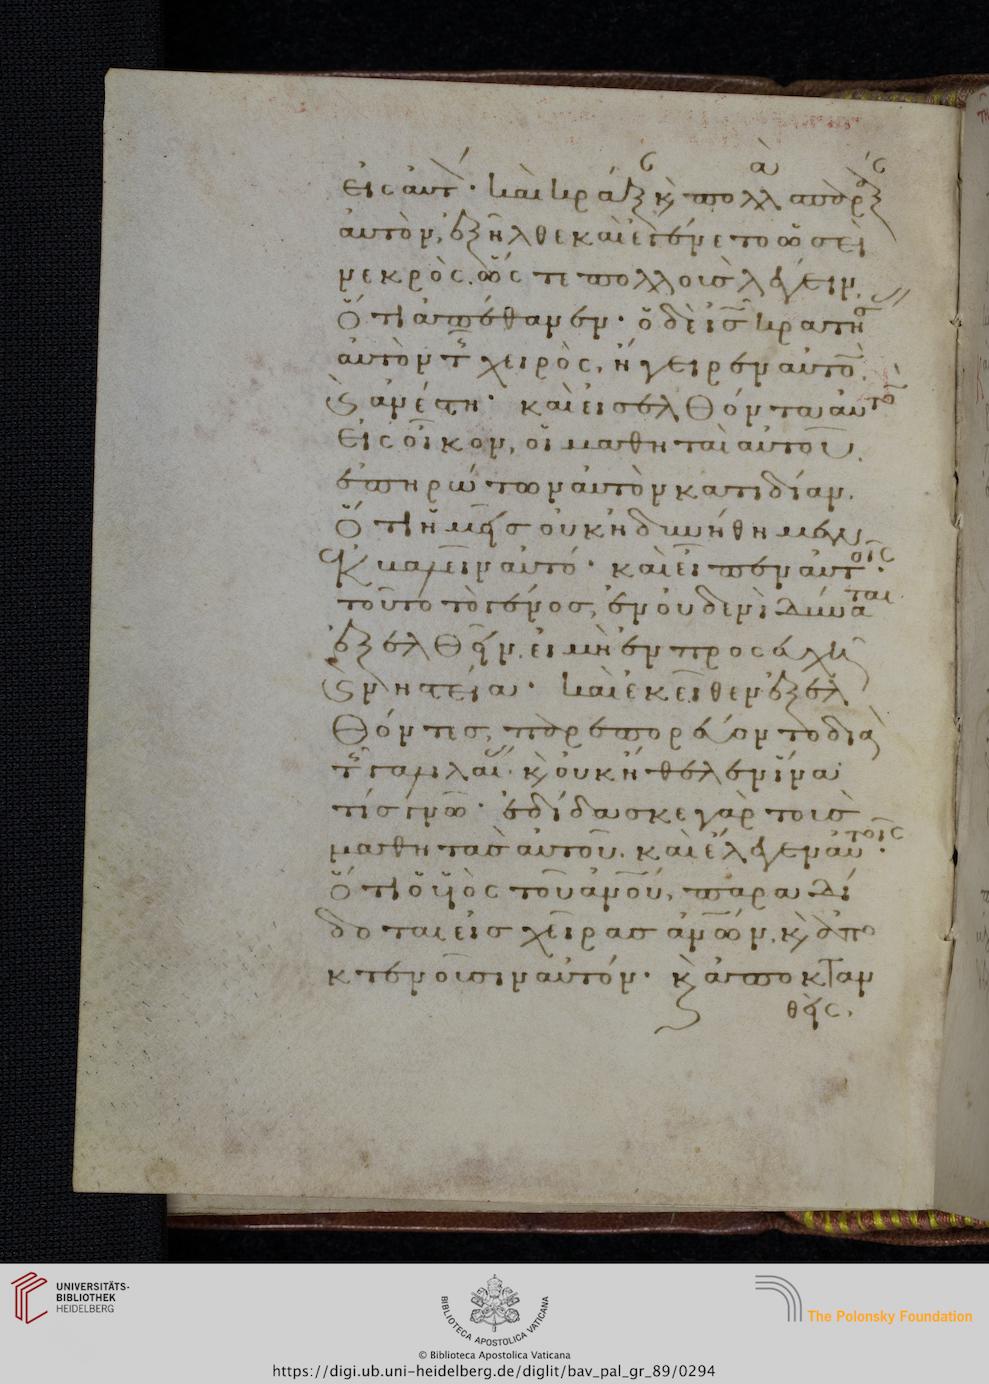 εἰς αὐτ´· καὶ κράξ(ας) κ(αὶ) πολλὰ σπαράξ(ας)
αὐτὸν, ἐξῆλθε καὶ ἐγένετο ὡσεὶ
νεκρὸς. ὥς τε πολλοὺς λέγειν
ὅτι ἀπέθανεν· ὁ δὲ ι̅ς̅ κρατη
αὐτὸν τῆς χειρὸς, ἤγειρεν αὐτὸ.
καὶ ἀνέστη· καὶ εἰσελθόντα αὐτὸ
εἰς οἶκον, οἱ μαθηταὶ αὐτοῦ
ἐπηρώτων αὐτὸν κατιδίαν.
ὅτι ἡμεῖς οὐκ ἠδυνήθημεν
ἐκβαλεῖν αὐτό· καὶ εἶπεν αὐτοῖς·
τοῦτο τὸ γένος, ἐν οὐδενὶ δύναται
ἐξελθεῖν. εἰ μὴ ἐν προσευχῆ
καὶ νηστεία· καὶ ἐκεῖθεν ἐξελ
θόντες, παρεπορεύοντο διὰ
τῆς γαλιλαί. κ(αὶ) οὐκ ἤθελεν ἵνα
τίς γνῶ· ἐδίδασκε γὰρ τοὺς
μαθητὰς αὐτοῦ. καὶ ἔλεγεν αὐτοῖς·
ὅτι ὁ υἱὸς τοῦ α̅ν̅ο̅υ̅, παραδί
δοται εἰς χεῖρας α̅ν̅ω̅ν̅, κ(αὶ) ἀπο
κτενοῦσιν αὐτόν· κ(αὶ) ἀποκταν
θεὶς.
UNIVERSITÄTS-
BIBLIOTHEK
HEIDELBERG
BIBLIOTECA APOSTOLICA VATICANA
The Polonsky Foundation
© Biblioteca Apostolica Vaticana
https://digi.ub.uni-heidelberg.de/diglit/bav_pal_gr_89/0294